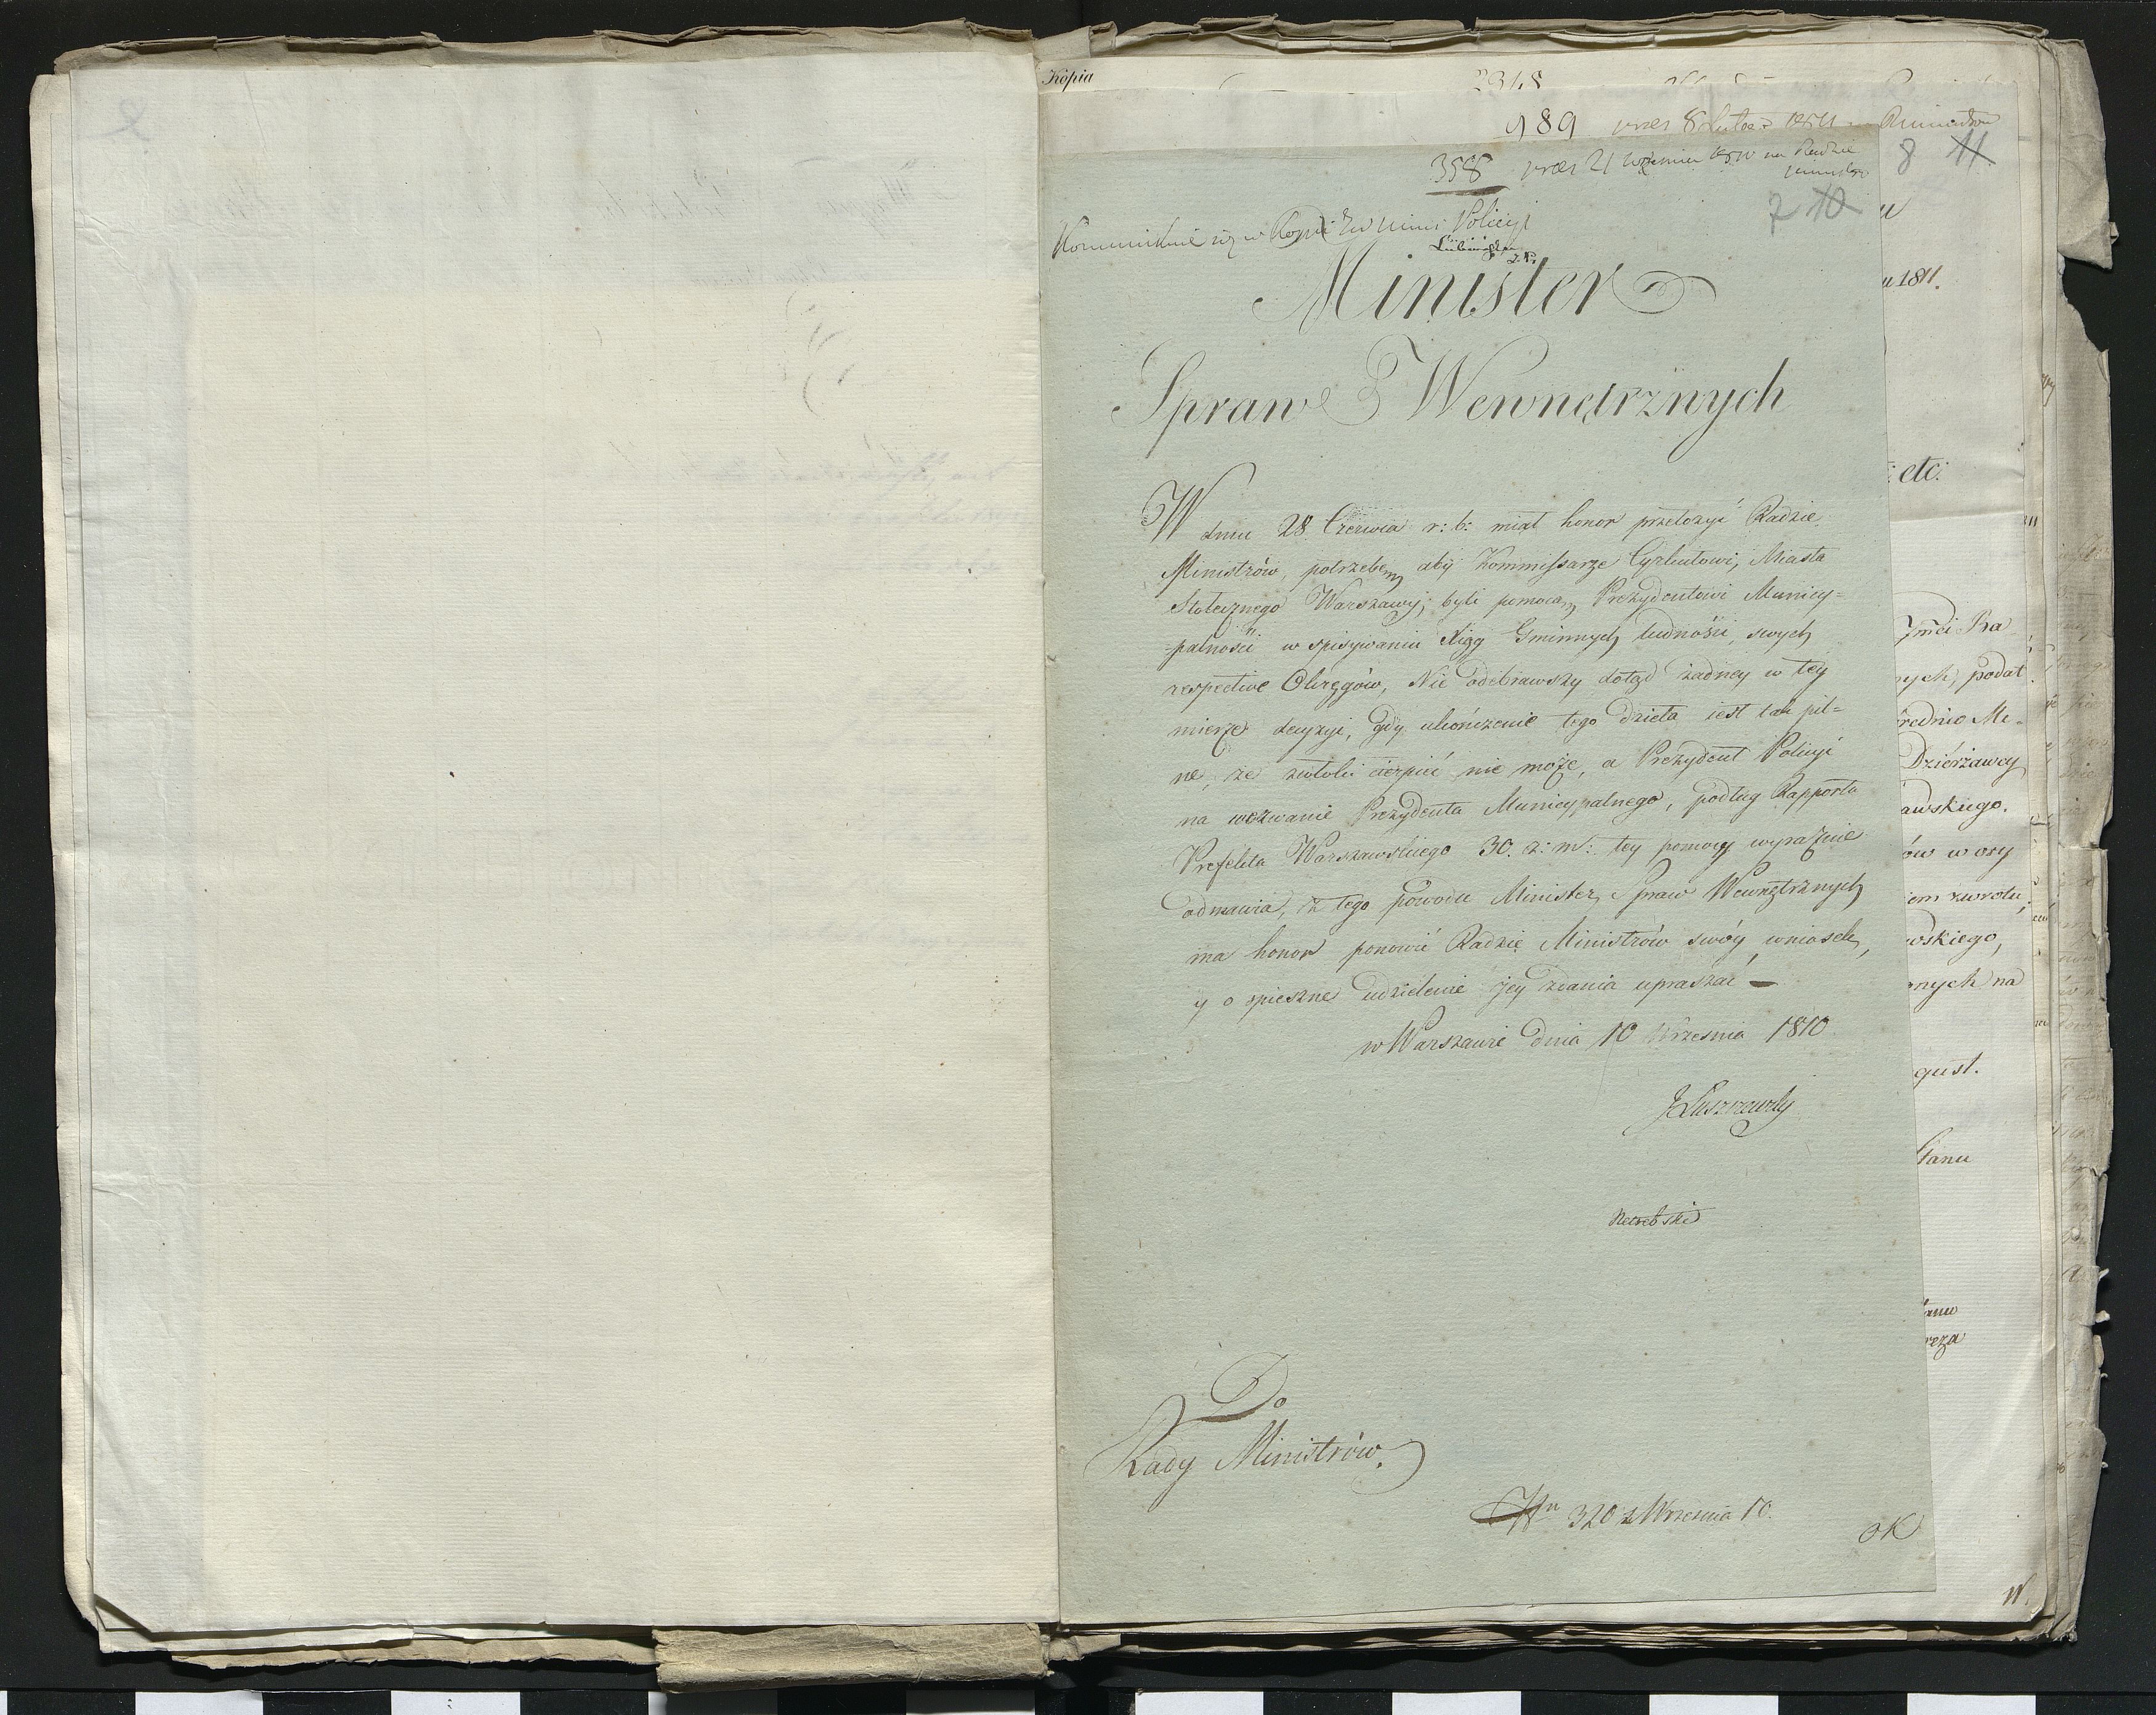 Kopia
2348
989 prees 8 Lutego 1811
358 prees 21 Września 1810 na Radzie
8 11
7 10
Kommunikuie się w Kopii Policyi
Minister
Spraw Wewnętrznych
u 1811.
etc:
W dniu 28 Czerwca r: b: miał honor przełożyć Radzie
Ministrów, potrzebę, aby Kommissarze Cyrkułowi, Miasta
Stołecznego Warszawy, byli pomocą Prezydentowi Municy=
palności w spisywaniu Xiąg Gminnych ludności, swych
respective Okręgów, Nie odebrawszy dotąd żadney w tey
mierze decyzyi, gdy ukończenie tego dzieła iest tak pil=
ne, że zwłoki cierpieć nie może, a Prezydent Policyi
na wezwanie Prezydenta Municypalnego, podług Rapportu
Prefekta Warszawskiego 30. z: m: tey pomocy wyraźnie
odmawia, z tego powodu Minister Spraw Wewnętrznych
ma honor ponowić Radzie Ministrów swóy wniosek,
y o spieszne udzielenie Jey zdania upraszać —
w Warszawie dnia 10 Września 1810
JŁuszczewski
Do
Rady Ministrów.
320 z Września 10.
ych, podat
rednio Me-
Dzierżawcy
awskiego.
ów w oxy
iem zwrotu,
wskiego,
nych na
gust.
Stanu